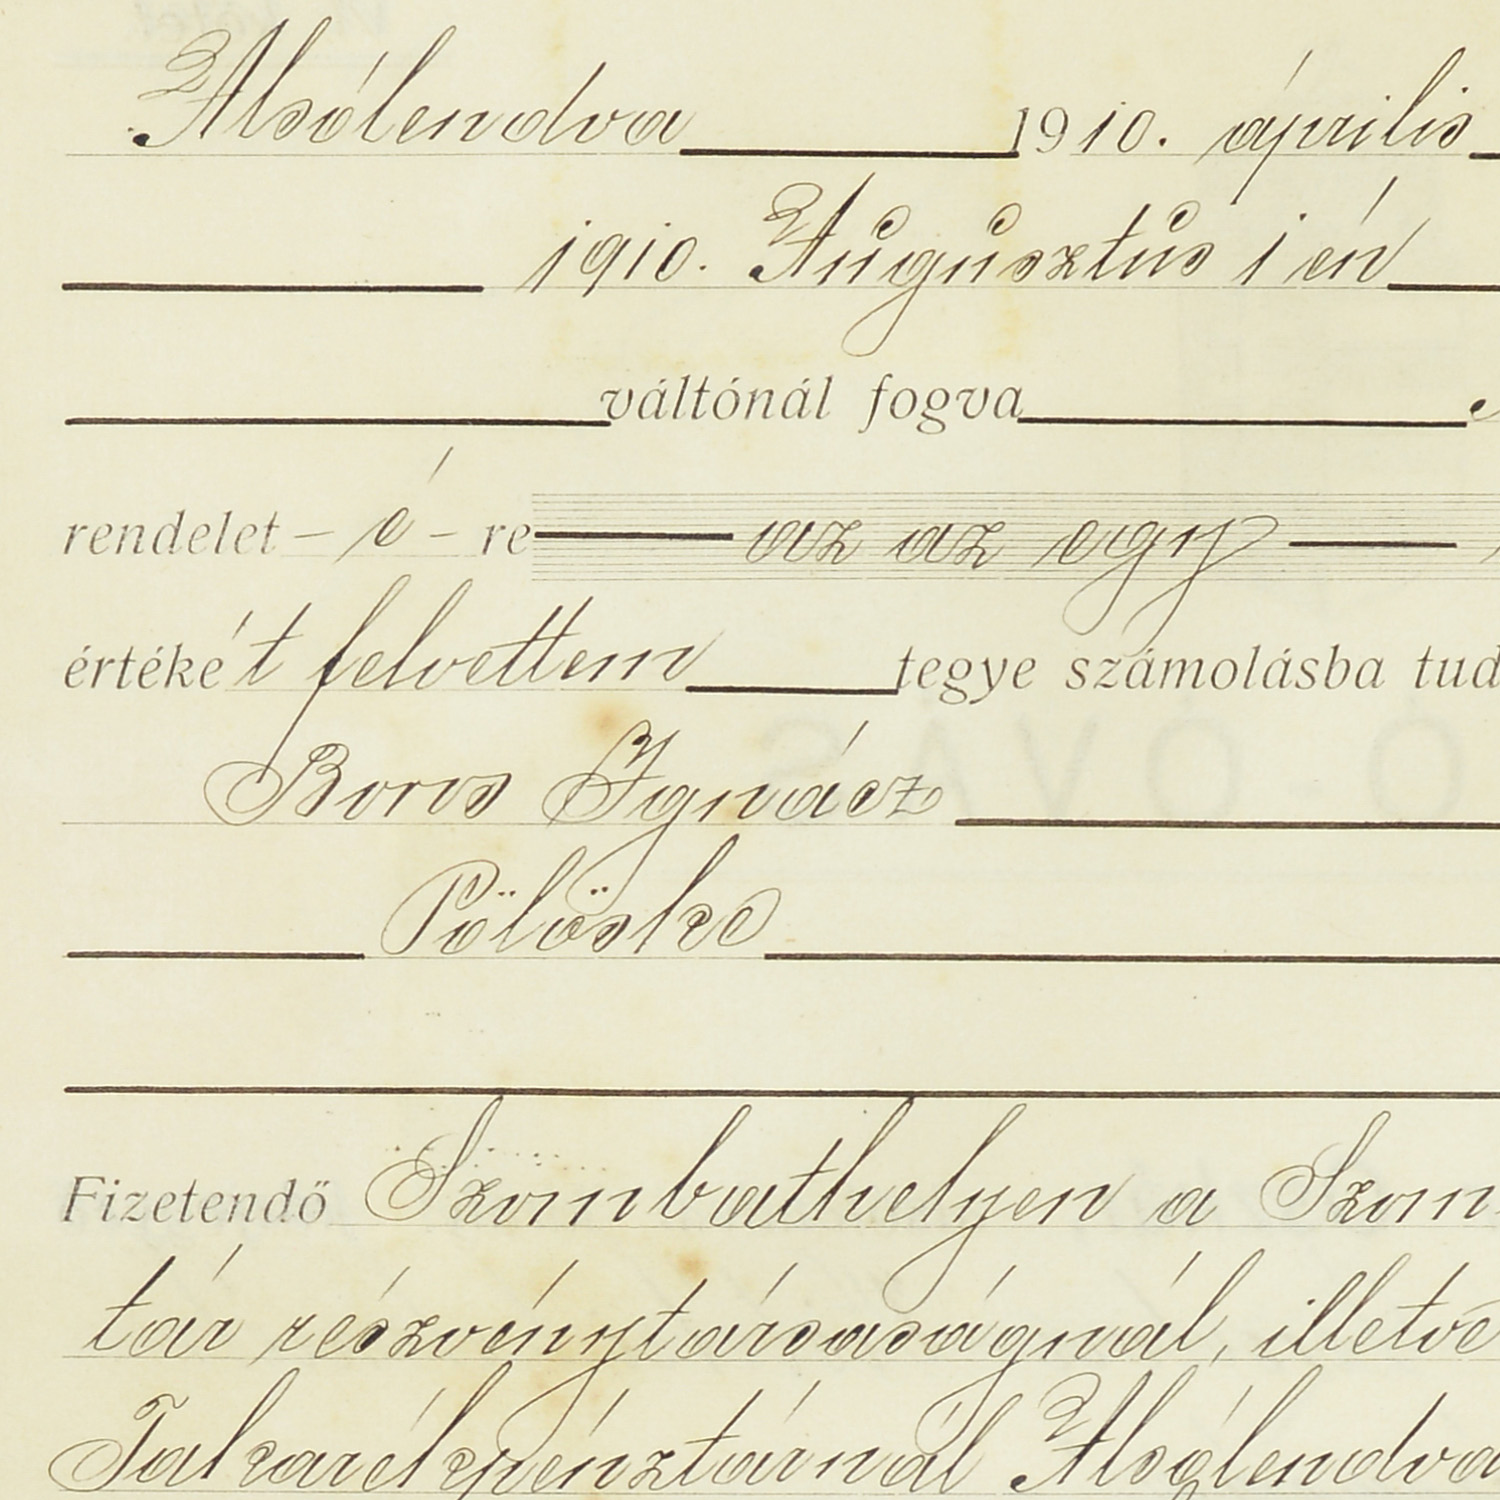 Alsólendva 1910. április
1910. Augusztus 1 én
váltónál fogva
rendelet – é – re az az egy
értéké't felvettem tegye számolásba tud
Boros Ignácz
Pölöske
Fizetendő Szombathelyen a Szom
tár részvénytársaságnál, illetve
Takarékpénztárnál Alsólendva